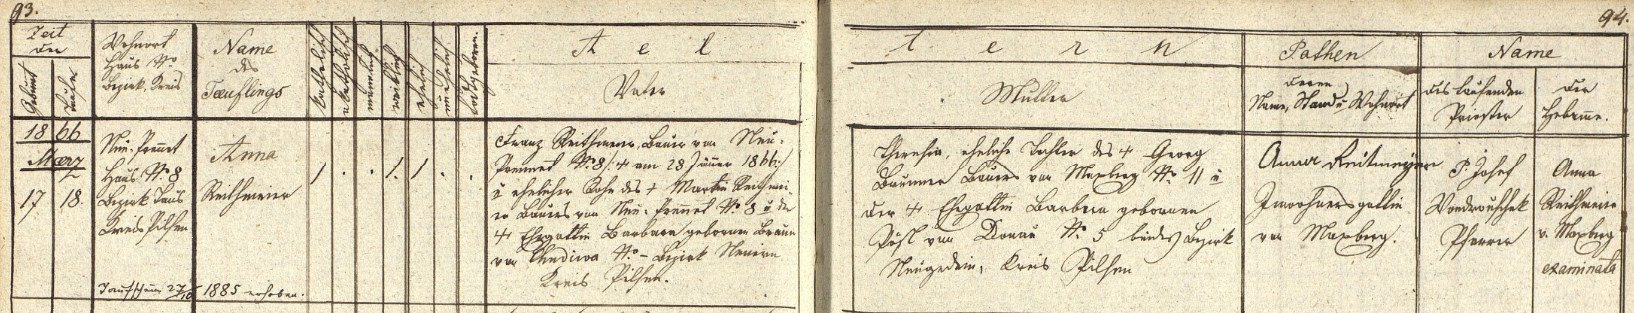 93.
94.
Zeit
der
Geburt
Taufe
Wohnort
Haus No
Bezirk, Kreis
Name
des
Taeuflings
katholisch
akatholisch
männlich
weiblich
ehelich
unehelich
todtgeboren
A e l t e r n
Vater
Mutter
Pathen
deren
Name, Stand u Wohnort
Name
des taufenden
Priester
der
Hebamme.
1866
Maerz
17 18.
Neu-Premet
Haus No 8
Bezirk Taus
Kreis Pilsen
Anna
Reithmeier
/ . . /. / . .
Franz Reithmeier, Bauer von Neu-
Premet No 8 /: + am 28 Jänner 1866 :/
u ehelicher Sohn des + Martin Reithmei-
er Bauers von Neu-Premet No 8 u der
+ Ehegattin Barbara gebornen Braun
von Chudiwa No - Bezirk Neuern
Kreis Pilsen.
Theresia, eheliche Tochter des + Georg
Baumer Bauers von Maxberg No 11 u
der + Ehegattin Barbara gebornen
Pösl von Donau No 5 beides Bezirk
Neugedein, Kreis Pilsen
Anna Reitmeyer
Inwohnersgattin
von Maxberg.
P. Josef
Wondrouschek
Pfarrer
Anna
Reithmeier
v. Maxberg
examinata
Taufschein 27/10 1885 erhoben.